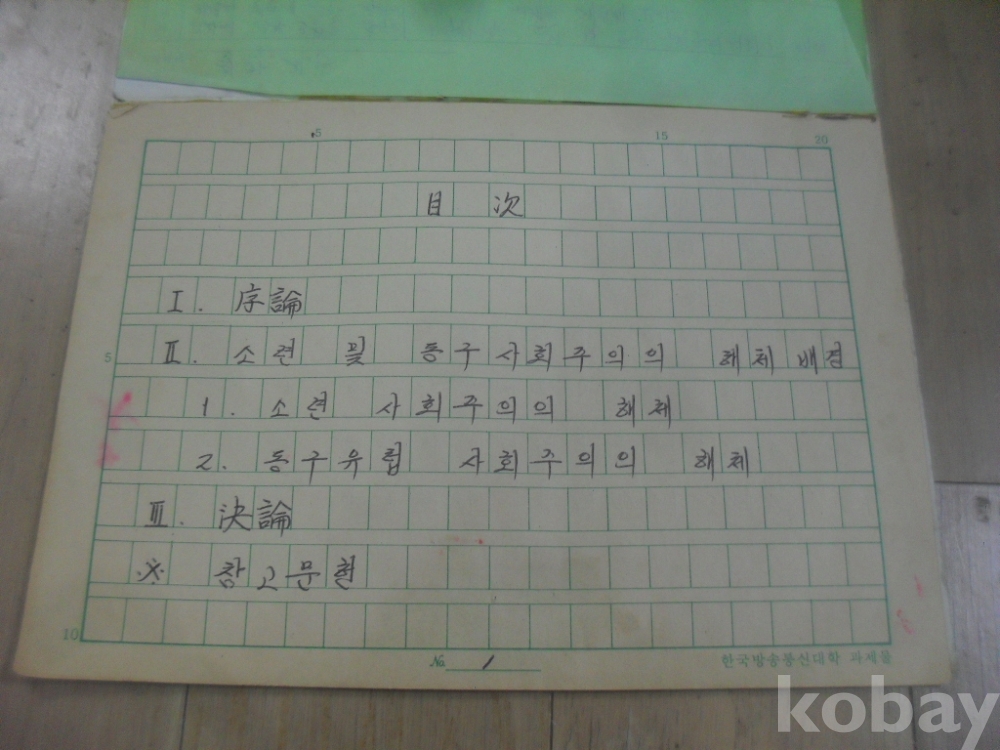 5 15 20
目 次
Ⅰ. 序論
5 Ⅱ. 소련 및 동구사회주의의 해체 배경
1. 소련 사회주의의 해체
2. 동구유럽 사회주의의 해체
Ⅲ. 決論
※ 참고문헌
10
№ 1 한국방송통신대학 과제물
kobay